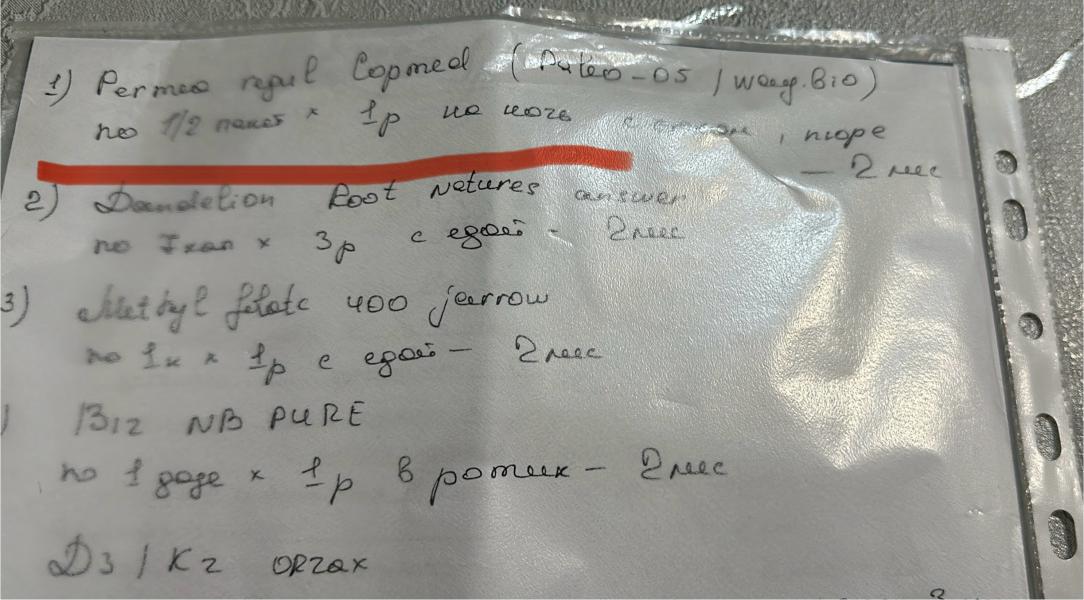 1) Permea regul Copmed ( -05 / )
по 1/2 пакет × 1р на ночь с , пюре
— 2 мес
2) Dandelion Root Natures answer
по кап × 3р с едой - 2 мес
3) Methyl folate 400 jarrow
по 1к × 1р с едой — 2 мес
) B12 NB PURE
по 1 дозе × 1р в ротик — 2 мес
D3 / K2 ORZAX